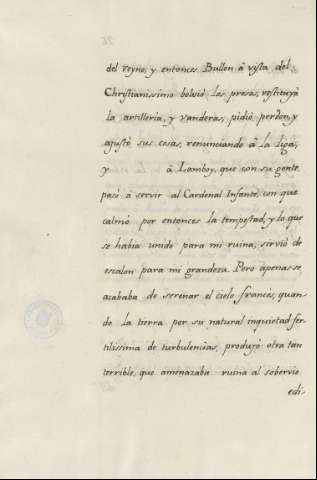 del reyno, y entonces Bullon â vista del
Christianissimo bolvió las presas, restituyó
la artilleria, y vanderas, pidió perdon, y
ajustó sus cosas, renunciando â la liga,
y â Lamboy, que con su gente
pasó â servir al Cardenal Infante, con que
calmó por entonces la tempestad, y lo que
se habia unido para mi ruina, sirvió de
escalon para mi grandeza. Pero apenas se
acababa de serenar el cielo francès, quan-
do la tierra por su natural inquietud fer-
tilissima de turbulencias, produjo otra tan
terrible, que amenazaba ruina al sobervio
edi-